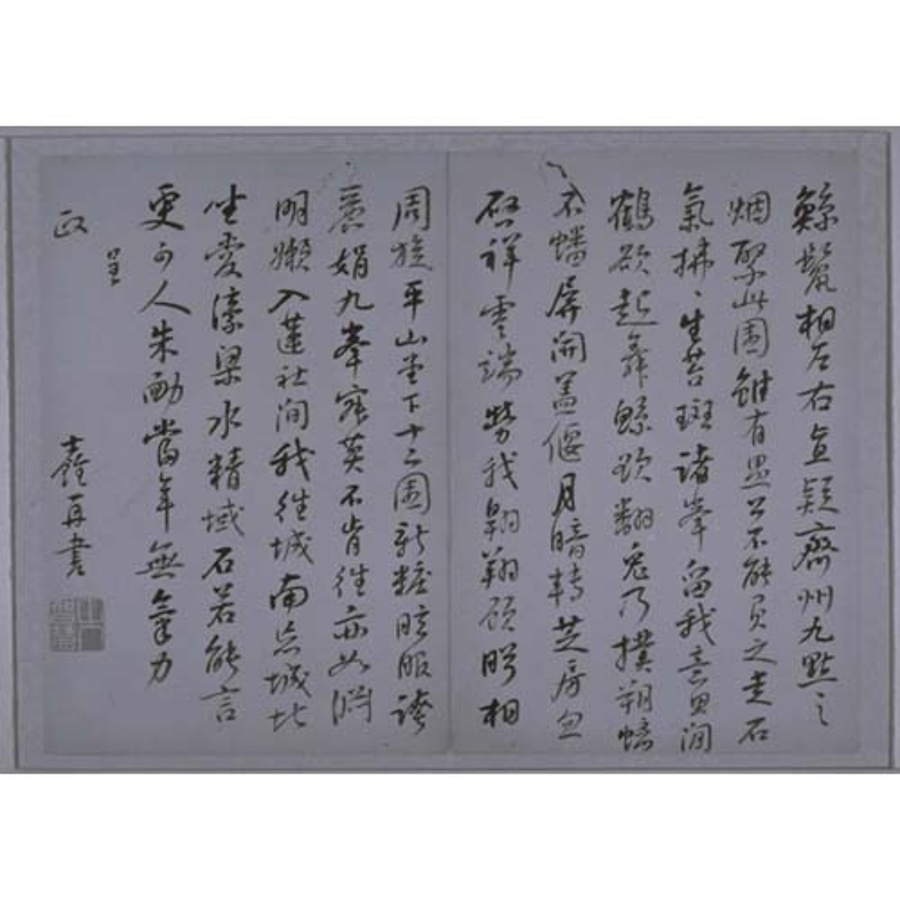 鯨鬣相左右直疑齊州九點之
烟聚此園雖有愚公不能負之走石
氣拂〻生苔斑諸峯留我意思閒
鶴欲起舞鯨欲翻兔乃撲朔蟾
不蟠屏開蓋偃月暗轉芝房忽
啓祥雲端勞我翱翔顧盻相
周旋平山堂下十二園新糚眩服誇
娟九峯寂莫不肯往亦如淵
明嬾入蓮社間我往城南忘城北
坐愛濠梁水精域石若能言
更可人朱勔當年無氣力
呈
政
士鑨再書